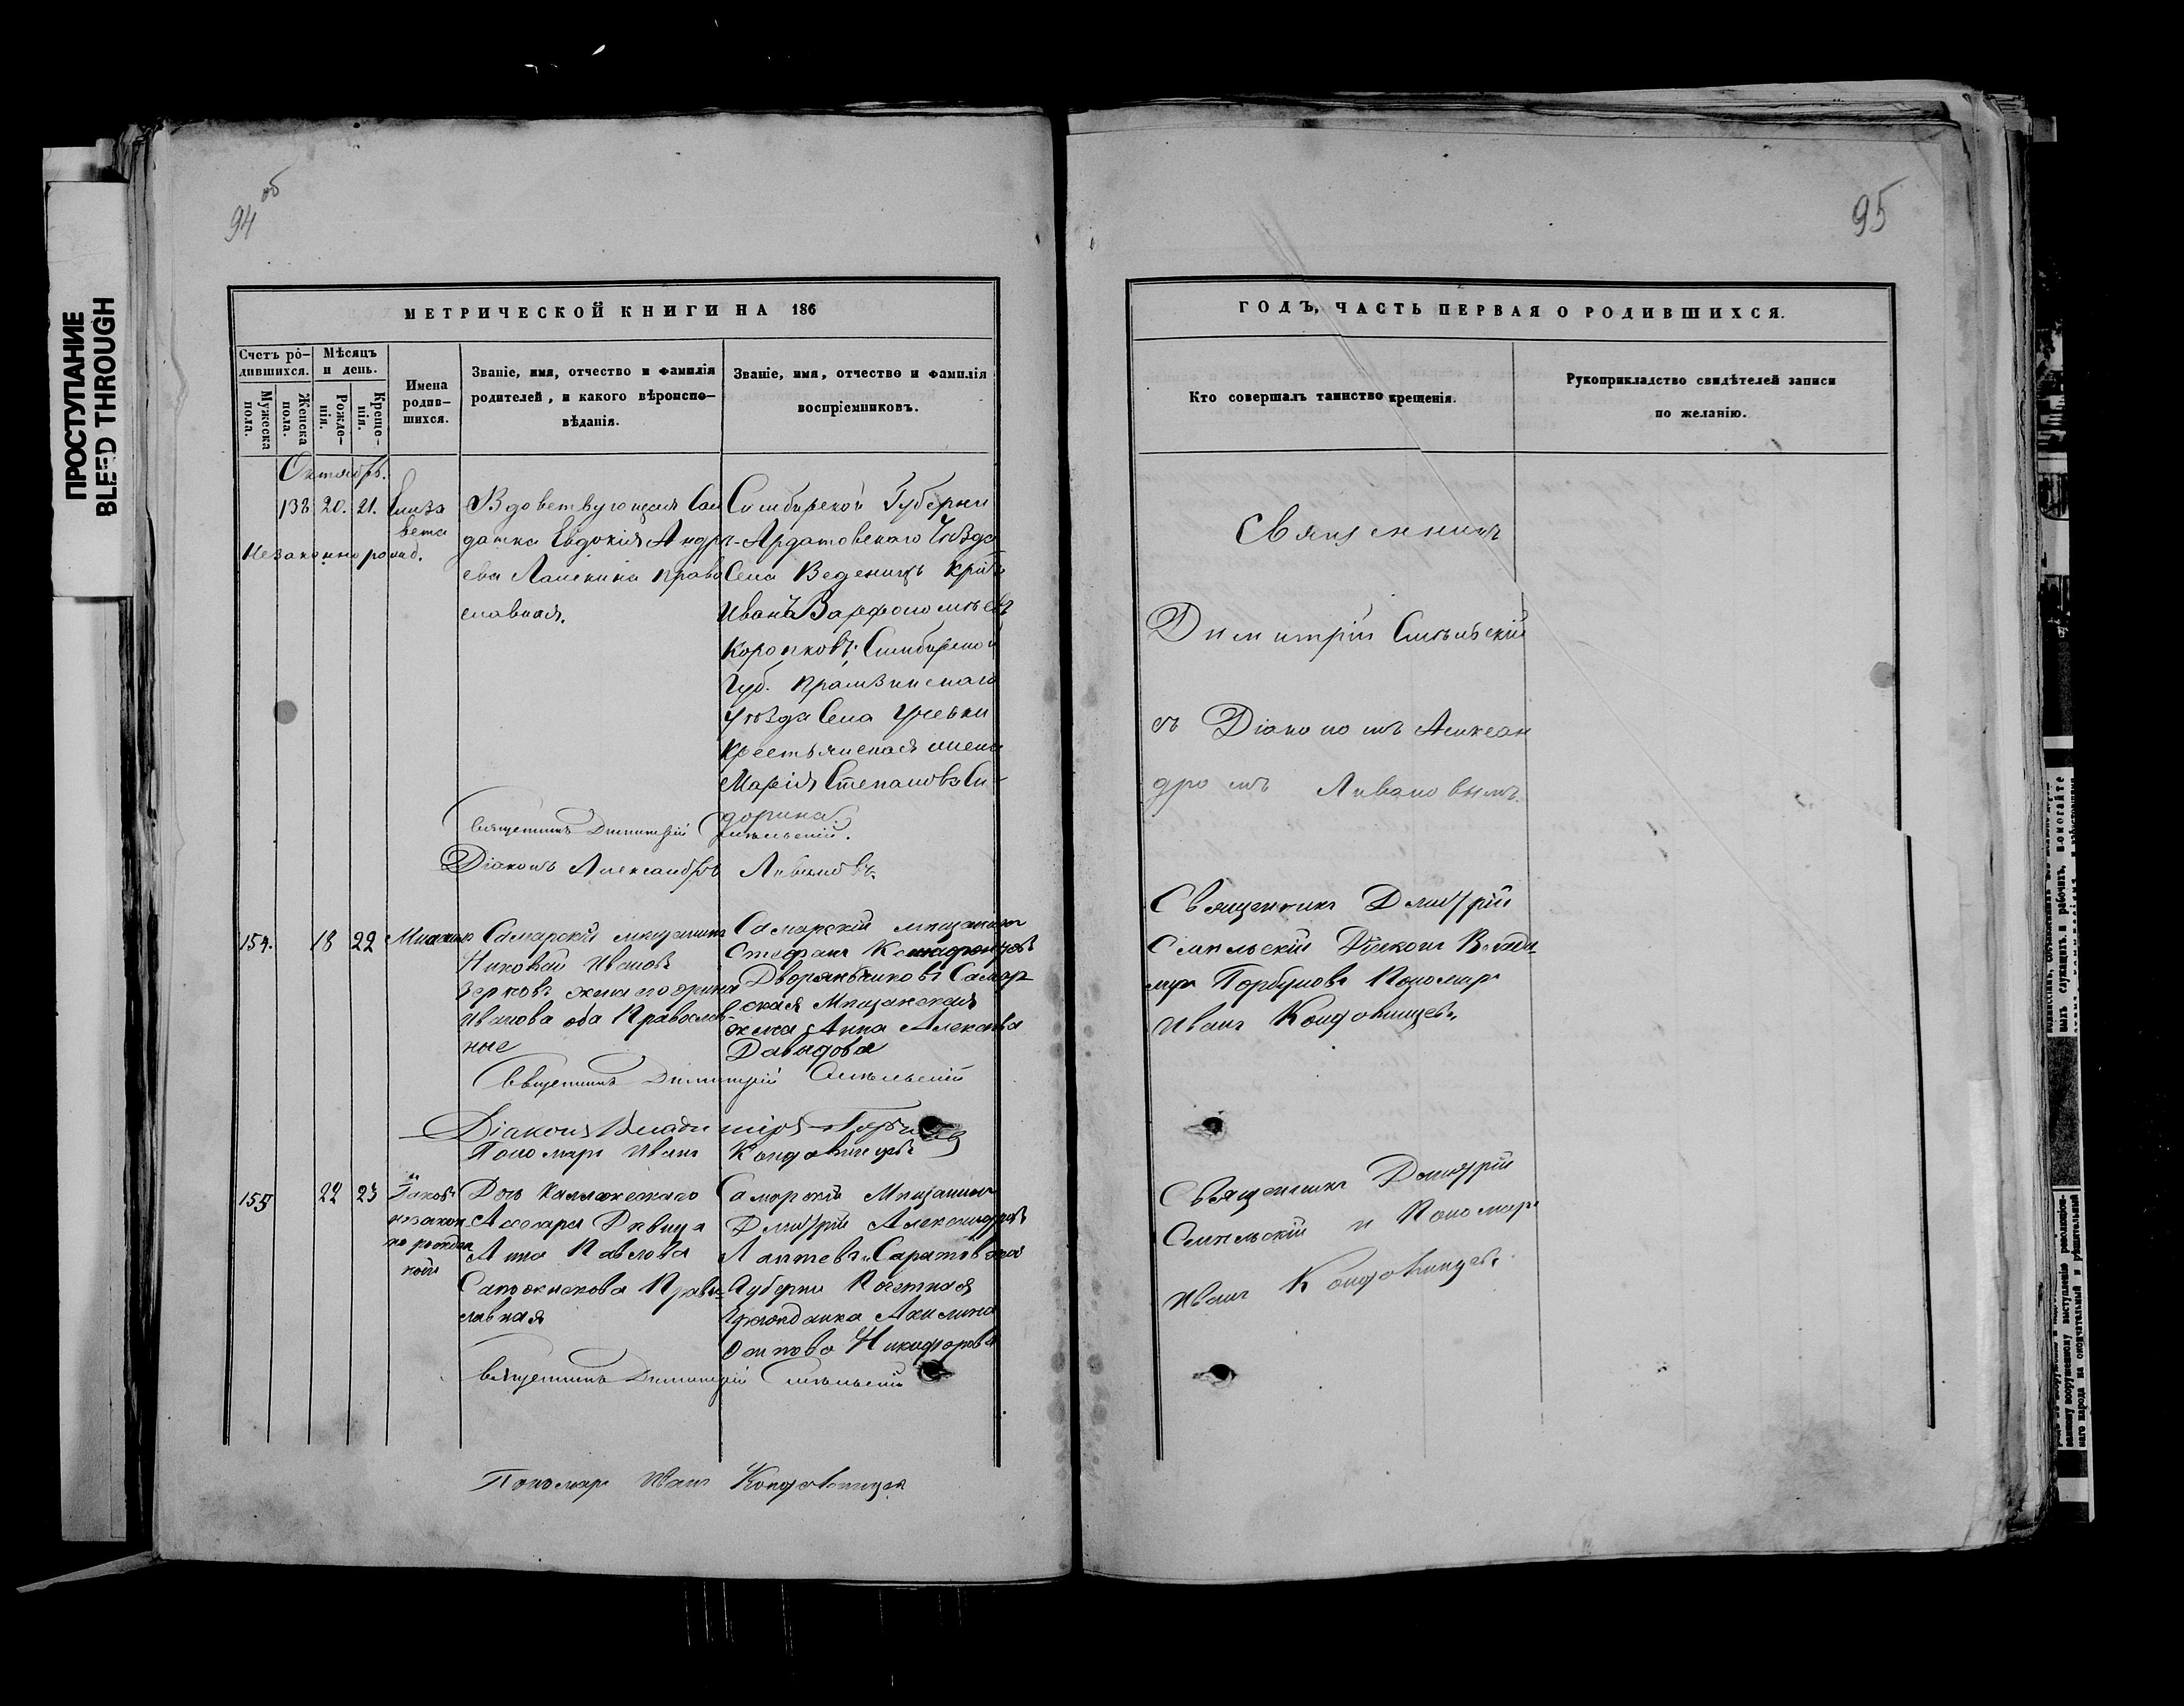 94 об
95
ПРОСТУПАНИЕ
BLEED THROUGH
МЕТРИЧЕСКОЙ КНИГИ НА 186
Счетъ ро-
дившихся.
Мужеска
пола.
Женска
пола.
Мѣсяцъ
и день.
Рожде-
нія.
Креще-
нія.
Имена
родив-
шихся.
Званіе, имя, отчество и фамилія
родителей, и какого вѣроиспо-
вѣданія.
Званіе, имя, отчество и фамилія
воспріемниковъ.
Октябрь.
138 20. 21. Елиза
вета
Незаконнорожд.
Вдовствующая Сол
датка Евдокія Андре
ева Лашкина право
славная.
Симбирской Губерніи
Ардатовскаго Уѣзда
Села Веденицъ
Иванъ Варфоломѣевъ
Коротковъ; Симбирской
Губ.
Уѣзда Села
Крестьянская жена
Марія Степанова Си-
дорина.
Священникъ Димитрій Смѣльскій.
Діаконъ Александръ Ливановъ.
154. 18 22
Самарскій мѣщанинъ
Николай Ивановъ
жена его Ирина
Иванова оба Православ-
ные
Самарскій мѣщанинъ
Стефанъ
Дворянчиковъ Самар-
ская Мѣщанская
жена Анна
Давыдова
Священникъ Димитрій Смѣльскій
Діаконъ Владиміръ Горбуновъ
Пономарь Иванъ
155 22 23 Іаковъ
незакон
но рожден
ный
Дочь
Ассесора Дѣвица
Анна Павлова
Сапожникова Право-
славная
Самарскій Мѣщанинъ
Дмитрій Александровъ
Лаптевъ и Саратовской
Губерніи Почетная
Гражданка Акилина
Осипова Никифорова
Священникъ Димитрій Смѣльскій
Пономарь Иванъ
ГОДЪ, ЧАСТЬ ПЕРВАЯ О РОДИВШИХСЯ.
Кто совершалъ таинство крещенія.
Рукоприкладство свидѣтелей записи
по желанію.
Священникъ
Димитрій Смѣльскій
съ Діакономъ Алексан
дромъ Ливановымъ.
Священникъ Дмитрій
Смѣльскій Діяконъ Влади-
миръ Горбуновъ Пономарь
Иванъ
Священникъ Дмитрій
Смѣльскій и Пономарь
Иванъ